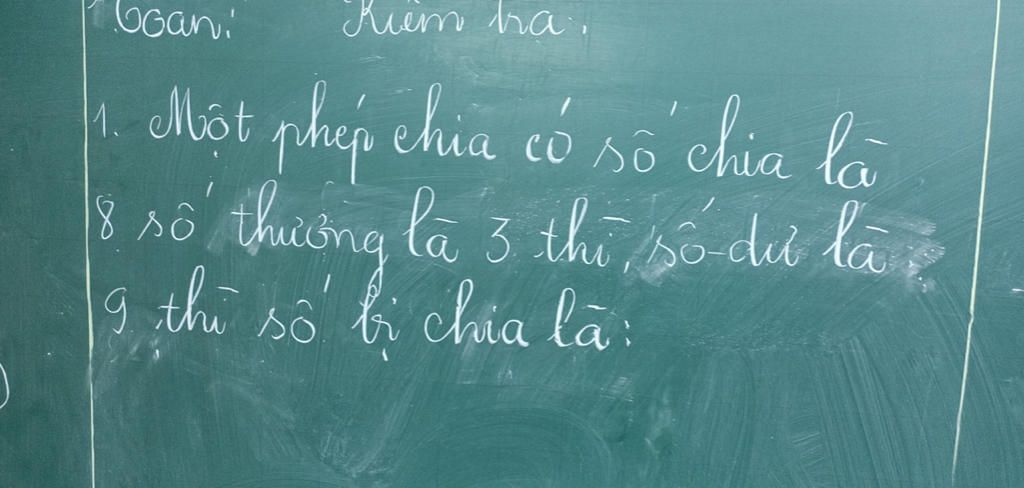 Toán: Kiểm tra:
1. Một phép chia có số chia là
8 số thương là 3 thì, số dư là
9 thì số bị chia là: